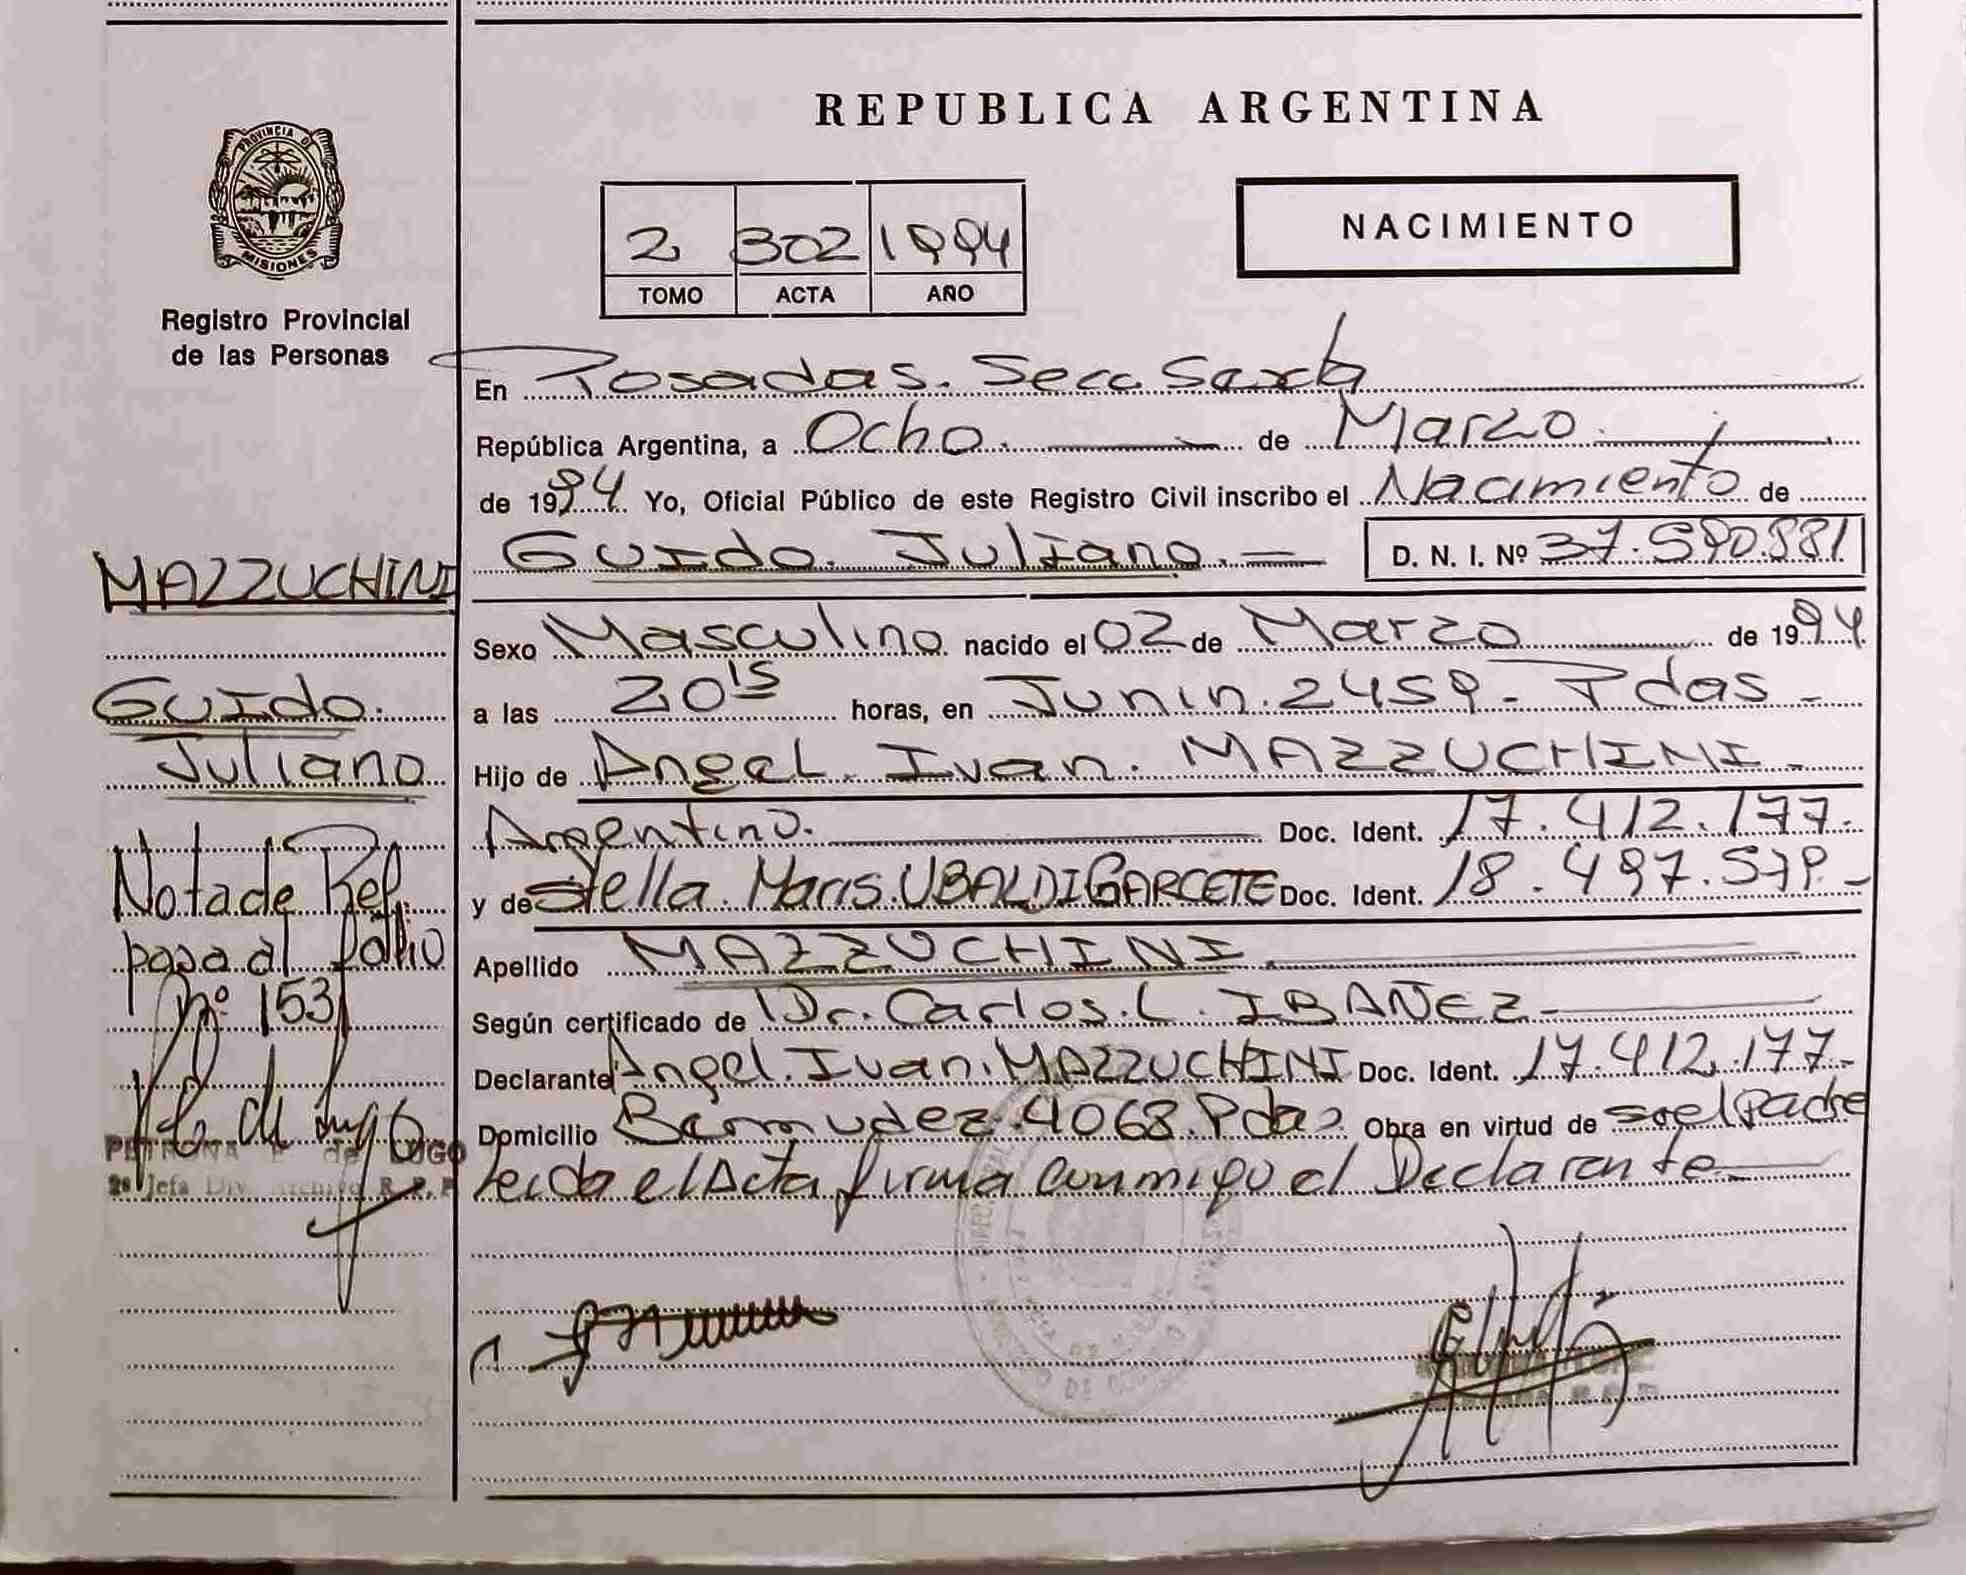 REPUBLICA ARGENTINA
PROVINCIA DE
MISIONES
Registro Provincial
de las Personas
2 302 1994
TOMO ACTA AÑO
NACIMIENTO
En Posadas. Secc. Sexta
República Argentina, a Ocho. de Marzo.
de 1994. Yo, Oficial Público de este Registro Civil inscribo el Nacimiento de
Guido. Juliano. D. N. I. Nº 37.590.881
Sexo Masculino nacido el 02 de Marzo de 1994
a las 20 15 horas, en Junin. 2459 - Pdas -
Hijo de Angel. Ivan. MAZZUCHINI -
Argentino. Doc. Ident. 17.412.177.
y de Stella. Maris. UBALDI GARCETE Doc. Ident. 18.497.579. -
Apellido MAZZUCHINI.
Según certificado de Dr. Carlos. L. IBAÑEZ -
Declarante Angel. Ivan. MAZZUCHINI Doc. Ident. 17.412.177 -
Domicilio Bermudez. 4068. Pdas Obra en virtud de ser el padre
Leida el Acta firma conmigo el Declarante -
MAZZUCHINI
Guido.
Juliano
Nota de Ref.
pasa al folio
Nº 153
de LUGO
2ª Jefa Div. Archivo R. P. P.